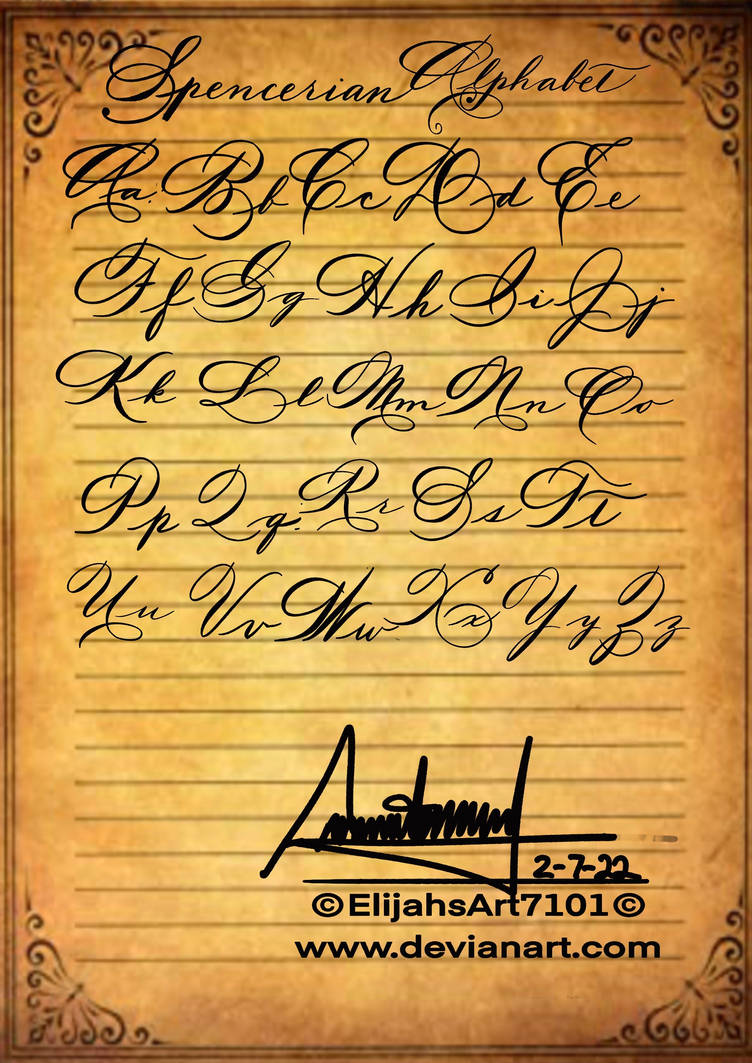 Spencerian Alphabet
Aa Bb Cc Dd Ee
Ff Gg Hh Ii Jj
Kk Ll Mm Nn Oo
Pp Qq Rr Ss Tt
Uu Vv Ww Xx Yy Zz
2-7-22
©ElijahsArt7101©
www.devianart.com